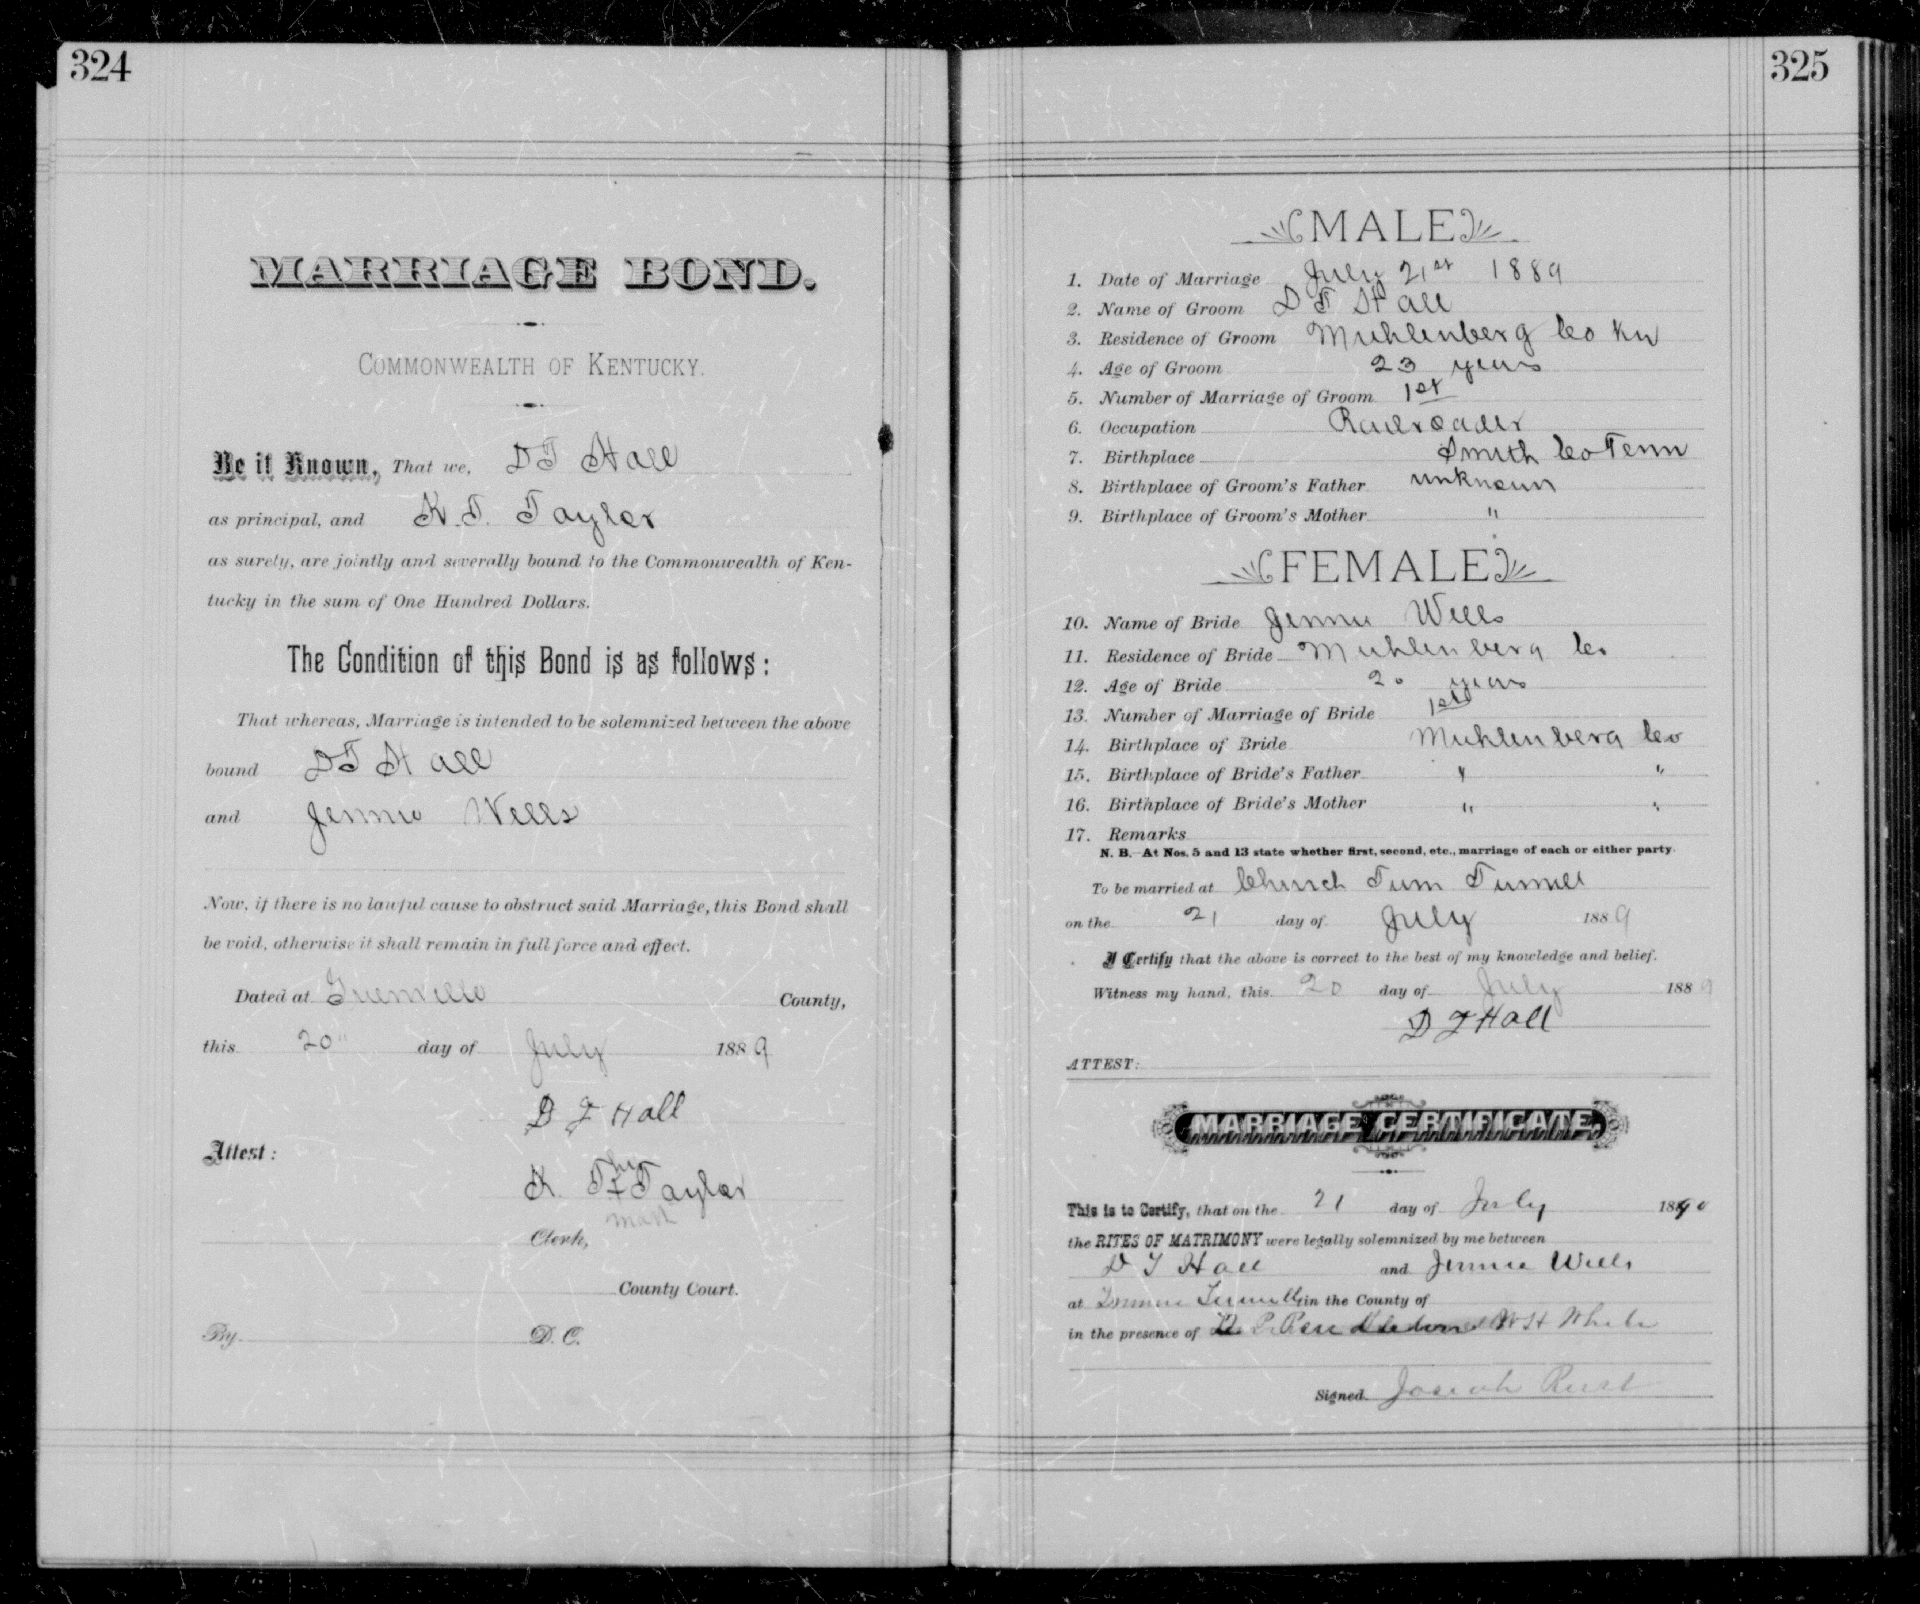 324
MARRIAGE BOND.
COMMONWEALTH OF KENTUCKY.
Be it Known, That we, D T Hall
as principal, and K. T. Taylor
as surety, are jointly and severally bound to the Commonwealth of Ken-
tucky in the sum of One Hundred Dollars.
The Condition of this Bond is as follows:
That whereas, Marriage is intended to be solemnized between the above
bound D T Hall
and Jennie Wells
Now, if there is no lawful cause to obstruct said Marriage, this Bond shall
be void, otherwise it shall remain in full force and effect.
Dated at County,
this 20" day of July 1889
D T Hall
Attest:
his
K. T. x Taylor
mark
Clerk,
County Court.
By D. C.
325
MALE
1. Date of Marriage July 21st 1889
2. Name of Groom D T Hall
3. Residence of Groom Muhlenberg Co Ky
4. Age of Groom 23 years
5. Number of Marriage of Groom 1st
6. Occupation Railroader
7. Birthplace Smith Co Tenn
8. Birthplace of Groom's Father unknown
9. Birthplace of Groom's Mother "
FEMALE
10. Name of Bride Jennie Wells
11. Residence of Bride Muhlenberg Co
12. Age of Bride 20 years
13. Number of Marriage of Bride 1st
14. Birthplace of Bride Muhlenberg Co
15. Birthplace of Bride's Father " "
16. Birthplace of Bride's Mother " "
17. Remarks
N. B.—At Nos. 5 and 13 state whether first, second, etc., marriage of each or either party.
To be married at Church Tunnell
on the 21 day of July 1889
I Certify that the above is correct to the best of my knowledge and belief.
Witness my hand, this 20 day of July 1889
D T Hall
ATTEST:
MARRIAGE CERTIFICATE.
This is to Certify, that on the 21 day of July 1890
the RITES OF MATRIMONY were legally solemnized by me between
D T Hall and Jennie Wells
at in the County of
in the presence of W H White
Signed Josiah Rust